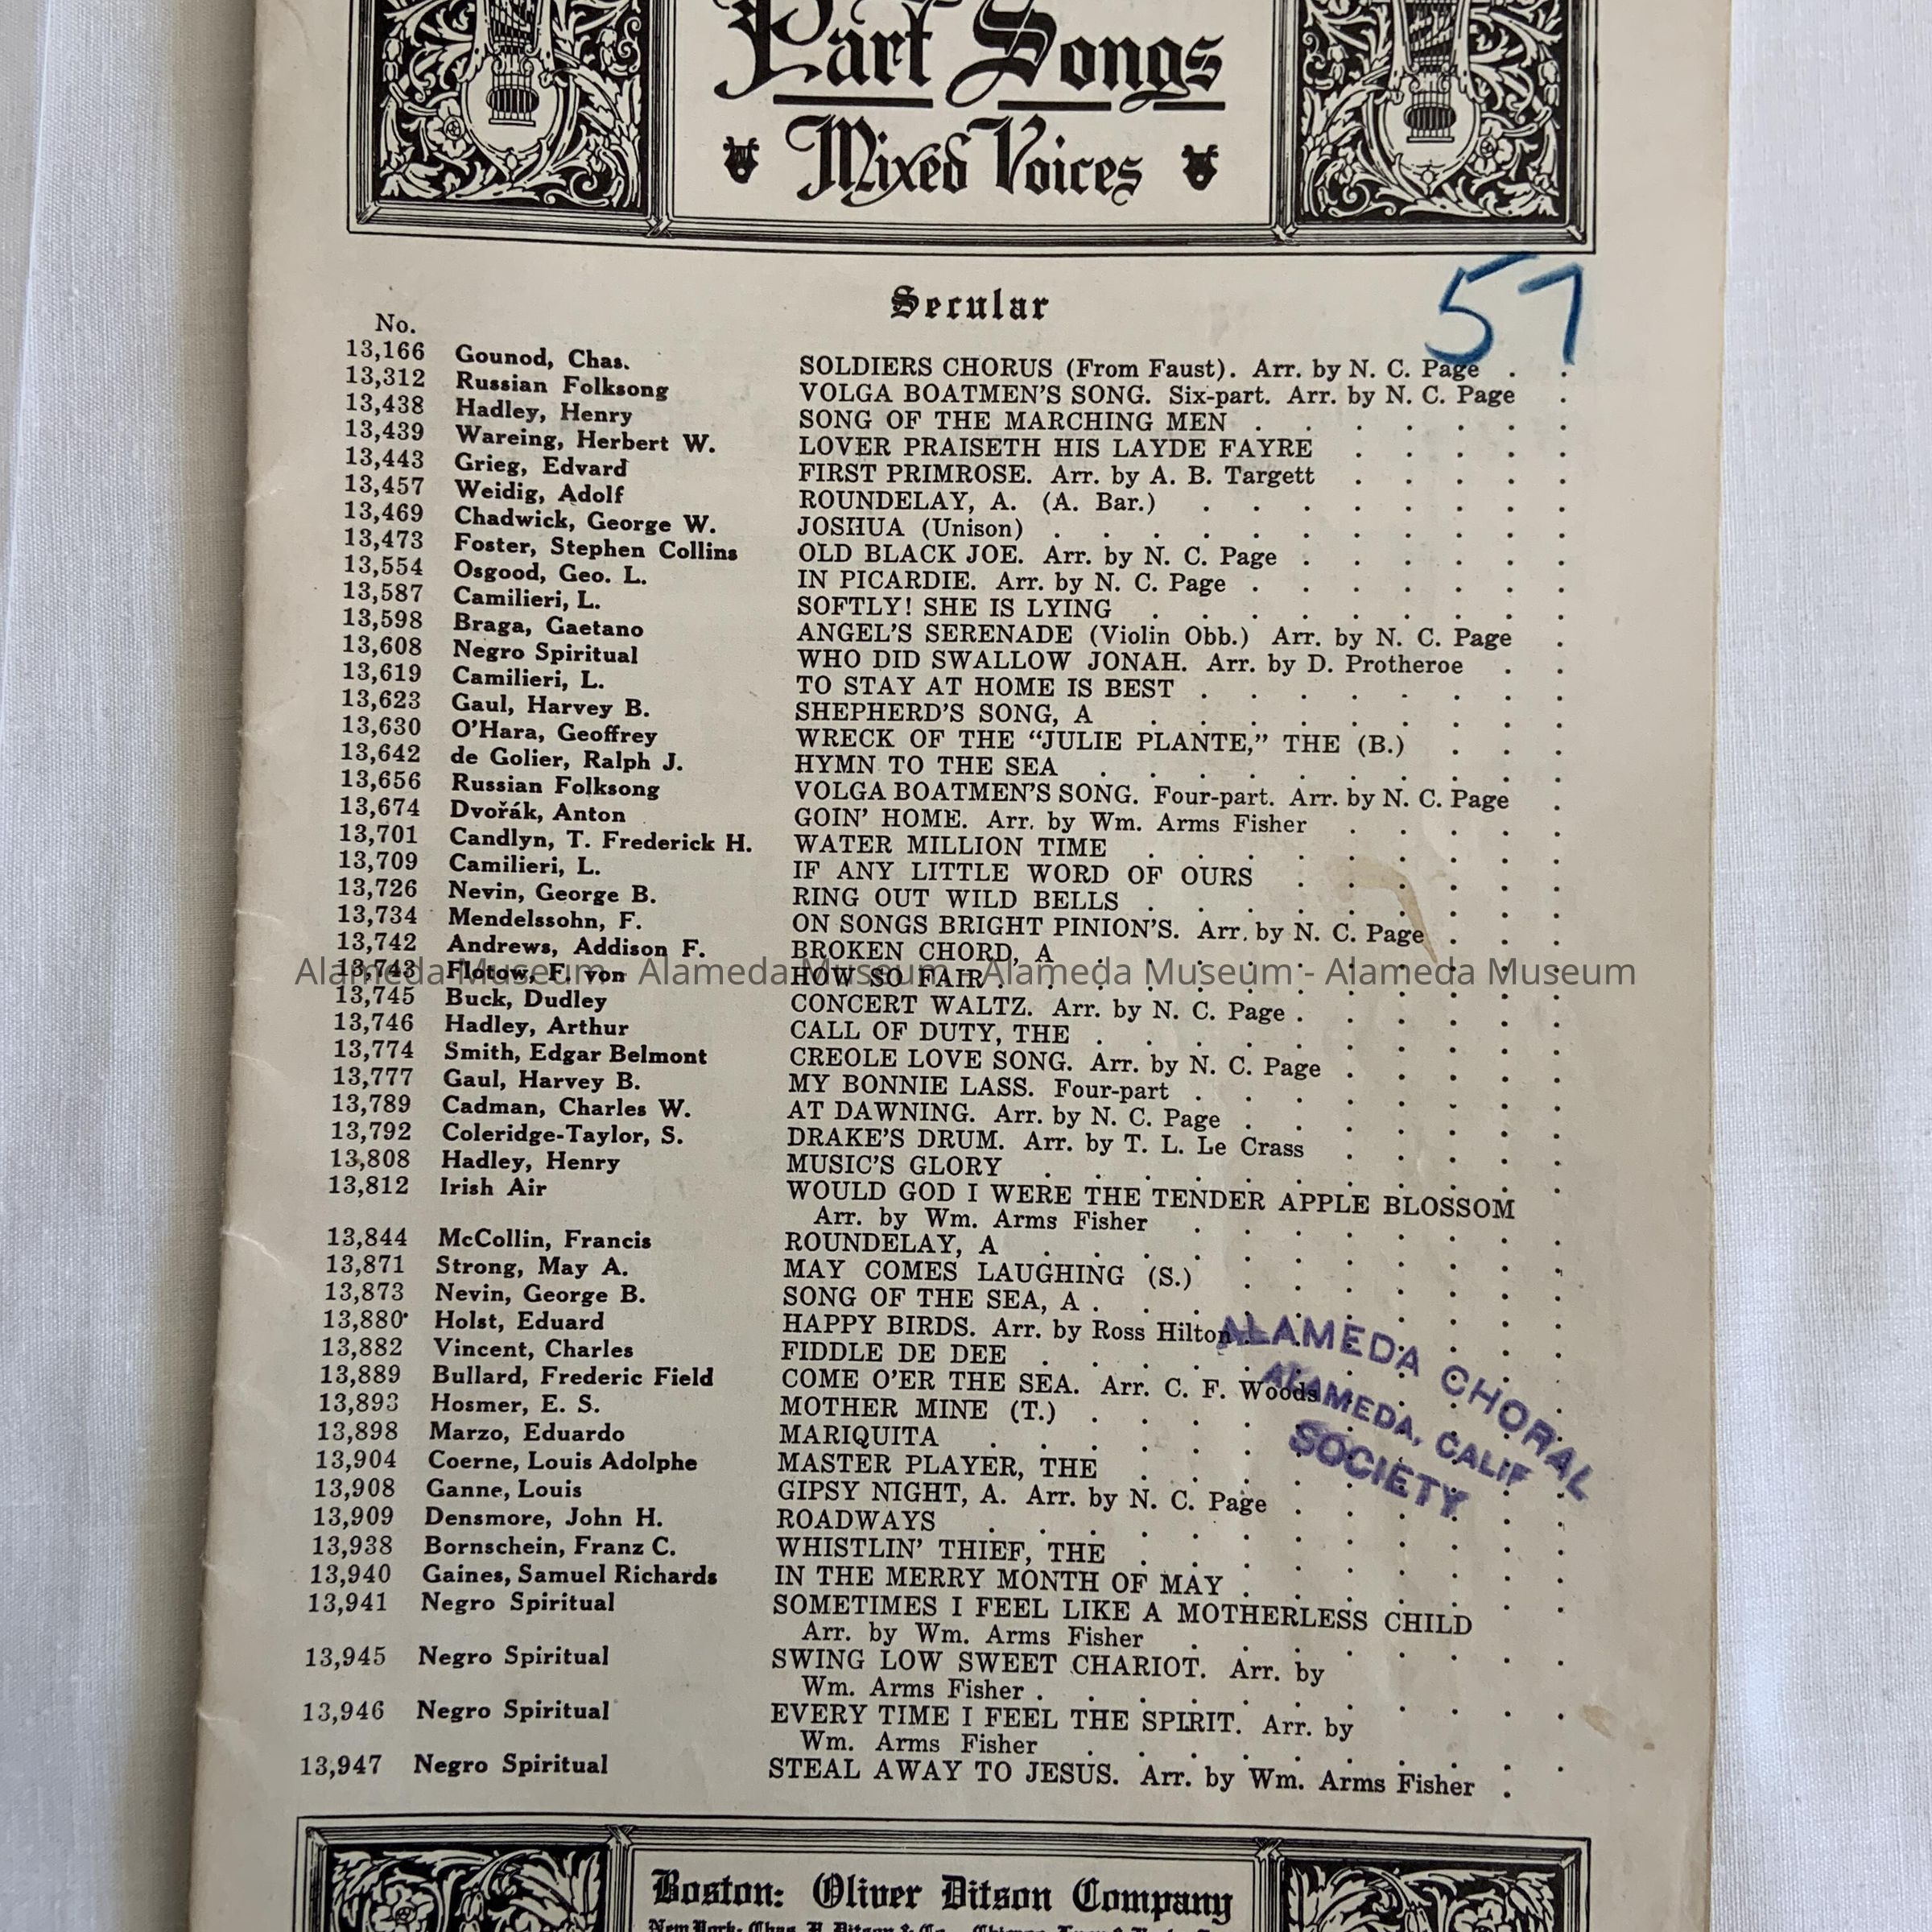 Part Songs
Mixed Voices
57
Secular
No.
13,166 Gounod, Chas. SOLDIERS CHORUS (From Faust). Arr. by N. C. Page . .
13,312 Russian Folksong VOLGA BOATMEN'S SONG. Six-part. Arr. by N. C. Page .
13,438 Hadley, Henry SONG OF THE MARCHING MEN . . . . . . .
13,439 Wareing, Herbert W. LOVER PRAISETH HIS LAYDE FAYRE . . . . .
13,443 Grieg, Edvard FIRST PRIMROSE. Arr. by A. B. Targett . . . . .
13,457 Weidig, Adolf ROUNDELAY, A. (A. Bar.) . . . . . . . .
13,469 Chadwick, George W. JOSHUA (Unison) . . . . . . . . . . .
13,473 Foster, Stephen Collins OLD BLACK JOE. Arr. by N. C. Page . . . . . .
13,554 Osgood, Geo. L. IN PICARDIE. Arr. by N. C. Page . . . . . . .
13,587 Camilieri, L. SOFTLY! SHE IS LYING . . . . . . . . .
13,598 Braga, Gaetano ANGEL'S SERENADE (Violin Obb.) Arr. by N. C. Page .
13,608 Negro Spiritual WHO DID SWALLOW JONAH. Arr. by D. Protheroe . .
13,619 Camilieri, L. TO STAY AT HOME IS BEST . . . . . . . .
13,623 Gaul, Harvey B. SHEPHERD'S SONG, A . . . . . . . . .
13,630 O'Hara, Geoffrey WRECK OF THE "JULIE PLANTE," THE (B.) . . .
13,642 de Golier, Ralph J. HYMN TO THE SEA . . . . . . . . . .
13,656 Russian Folksong VOLGA BOATMEN'S SONG. Four-part. Arr. by N. C. Page .
13,674 Dvořák, Anton GOIN' HOME. Arr. by Wm. Arms Fisher . . . . .
13,701 Candlyn, T. Frederick H. WATER MILLION TIME . . . . . . . . .
13,709 Camilieri, L. IF ANY LITTLE WORD OF OURS . . . . . .
13,726 Nevin, George B. RING OUT WILD BELLS . . . . . . . . .
13,734 Mendelssohn, F. ON SONGS BRIGHT PINION'S. Arr. by N. C. Page . . .
13,742 Andrews, Addison F. BROKEN CHORD, A . . . . . . . . . .
13,743 Flotow, F. von HOW SO FAIR . . . . . . . . . . . .
Alameda Museum - Alameda Museum - Alameda Museum - Alameda Museum
13,745 Buck, Dudley CONCERT WALTZ. Arr. by N. C. Page . . . . . .
13,746 Hadley, Arthur CALL OF DUTY, THE . . . . . . . . . .
13,774 Smith, Edgar Belmont CREOLE LOVE SONG. Arr. by N. C. Page . . . . .
13,777 Gaul, Harvey B. MY BONNIE LASS. Four-part . . . . . . . .
13,789 Cadman, Charles W. AT DAWNING. Arr. by N. C. Page . . . . . . .
13,792 Coleridge-Taylor, S. DRAKE'S DRUM. Arr. by T. L. Le Crass . . . . .
13,808 Hadley, Henry MUSIC'S GLORY . . . . . . . . . . .
13,812 Irish Air WOULD GOD I WERE THE TENDER APPLE BLOSSOM
Arr. by Wm. Arms Fisher . . . . . . . .
13,844 McCollin, Francis ROUNDELAY, A . . . . . . . . . . .
13,871 Strong, May A. MAY COMES LAUGHING (S.) . . . . . . .
13,873 Nevin, George B. SONG OF THE SEA, A . . . . . . . . . .
13,880 Holst, Eduard HAPPY BIRDS. Arr. by Ross Hilton . . . . . . .
13,882 Vincent, Charles FIDDLE DE DEE . . . . . . . . . . .
13,889 Bullard, Frederic Field COME O'ER THE SEA. Arr. C. F. Woods . . . . .
13,893 Hosmer, E. S. MOTHER MINE (T.) . . . . . . . . . .
13,898 Marzo, Eduardo MARIQUITA . . . . . . . . . . . .
13,904 Coerne, Louis Adolphe MASTER PLAYER, THE . . . . . . . . .
13,908 Ganne, Louis GIPSY NIGHT, A. Arr. by N. C. Page . . . . . .
13,909 Densmore, John H. ROADWAYS . . . . . . . . . . . .
13,938 Bornschein, Franz C. WHISTLIN' THIEF, THE . . . . . . . . .
13,940 Gaines, Samuel Richards IN THE MERRY MONTH OF MAY . . . . . . .
13,941 Negro Spiritual SOMETIMES I FEEL LIKE A MOTHERLESS CHILD
Arr. by Wm. Arms Fisher . . . . . . . .
13,945 Negro Spiritual SWING LOW SWEET CHARIOT. Arr. by
Wm. Arms Fisher . . . . . . . . . . .
13,946 Negro Spiritual EVERY TIME I FEEL THE SPIRIT. Arr. by
Wm. Arms Fisher . . . . . . . . . .
13,947 Negro Spiritual STEAL AWAY TO JESUS. Arr. by Wm. Arms Fisher .
ALAMEDA CHORAL
ALAMEDA, CALIF
SOCIETY
Boston: Oliver Ditson Company
New York: Chas. H. Ditson & Co.